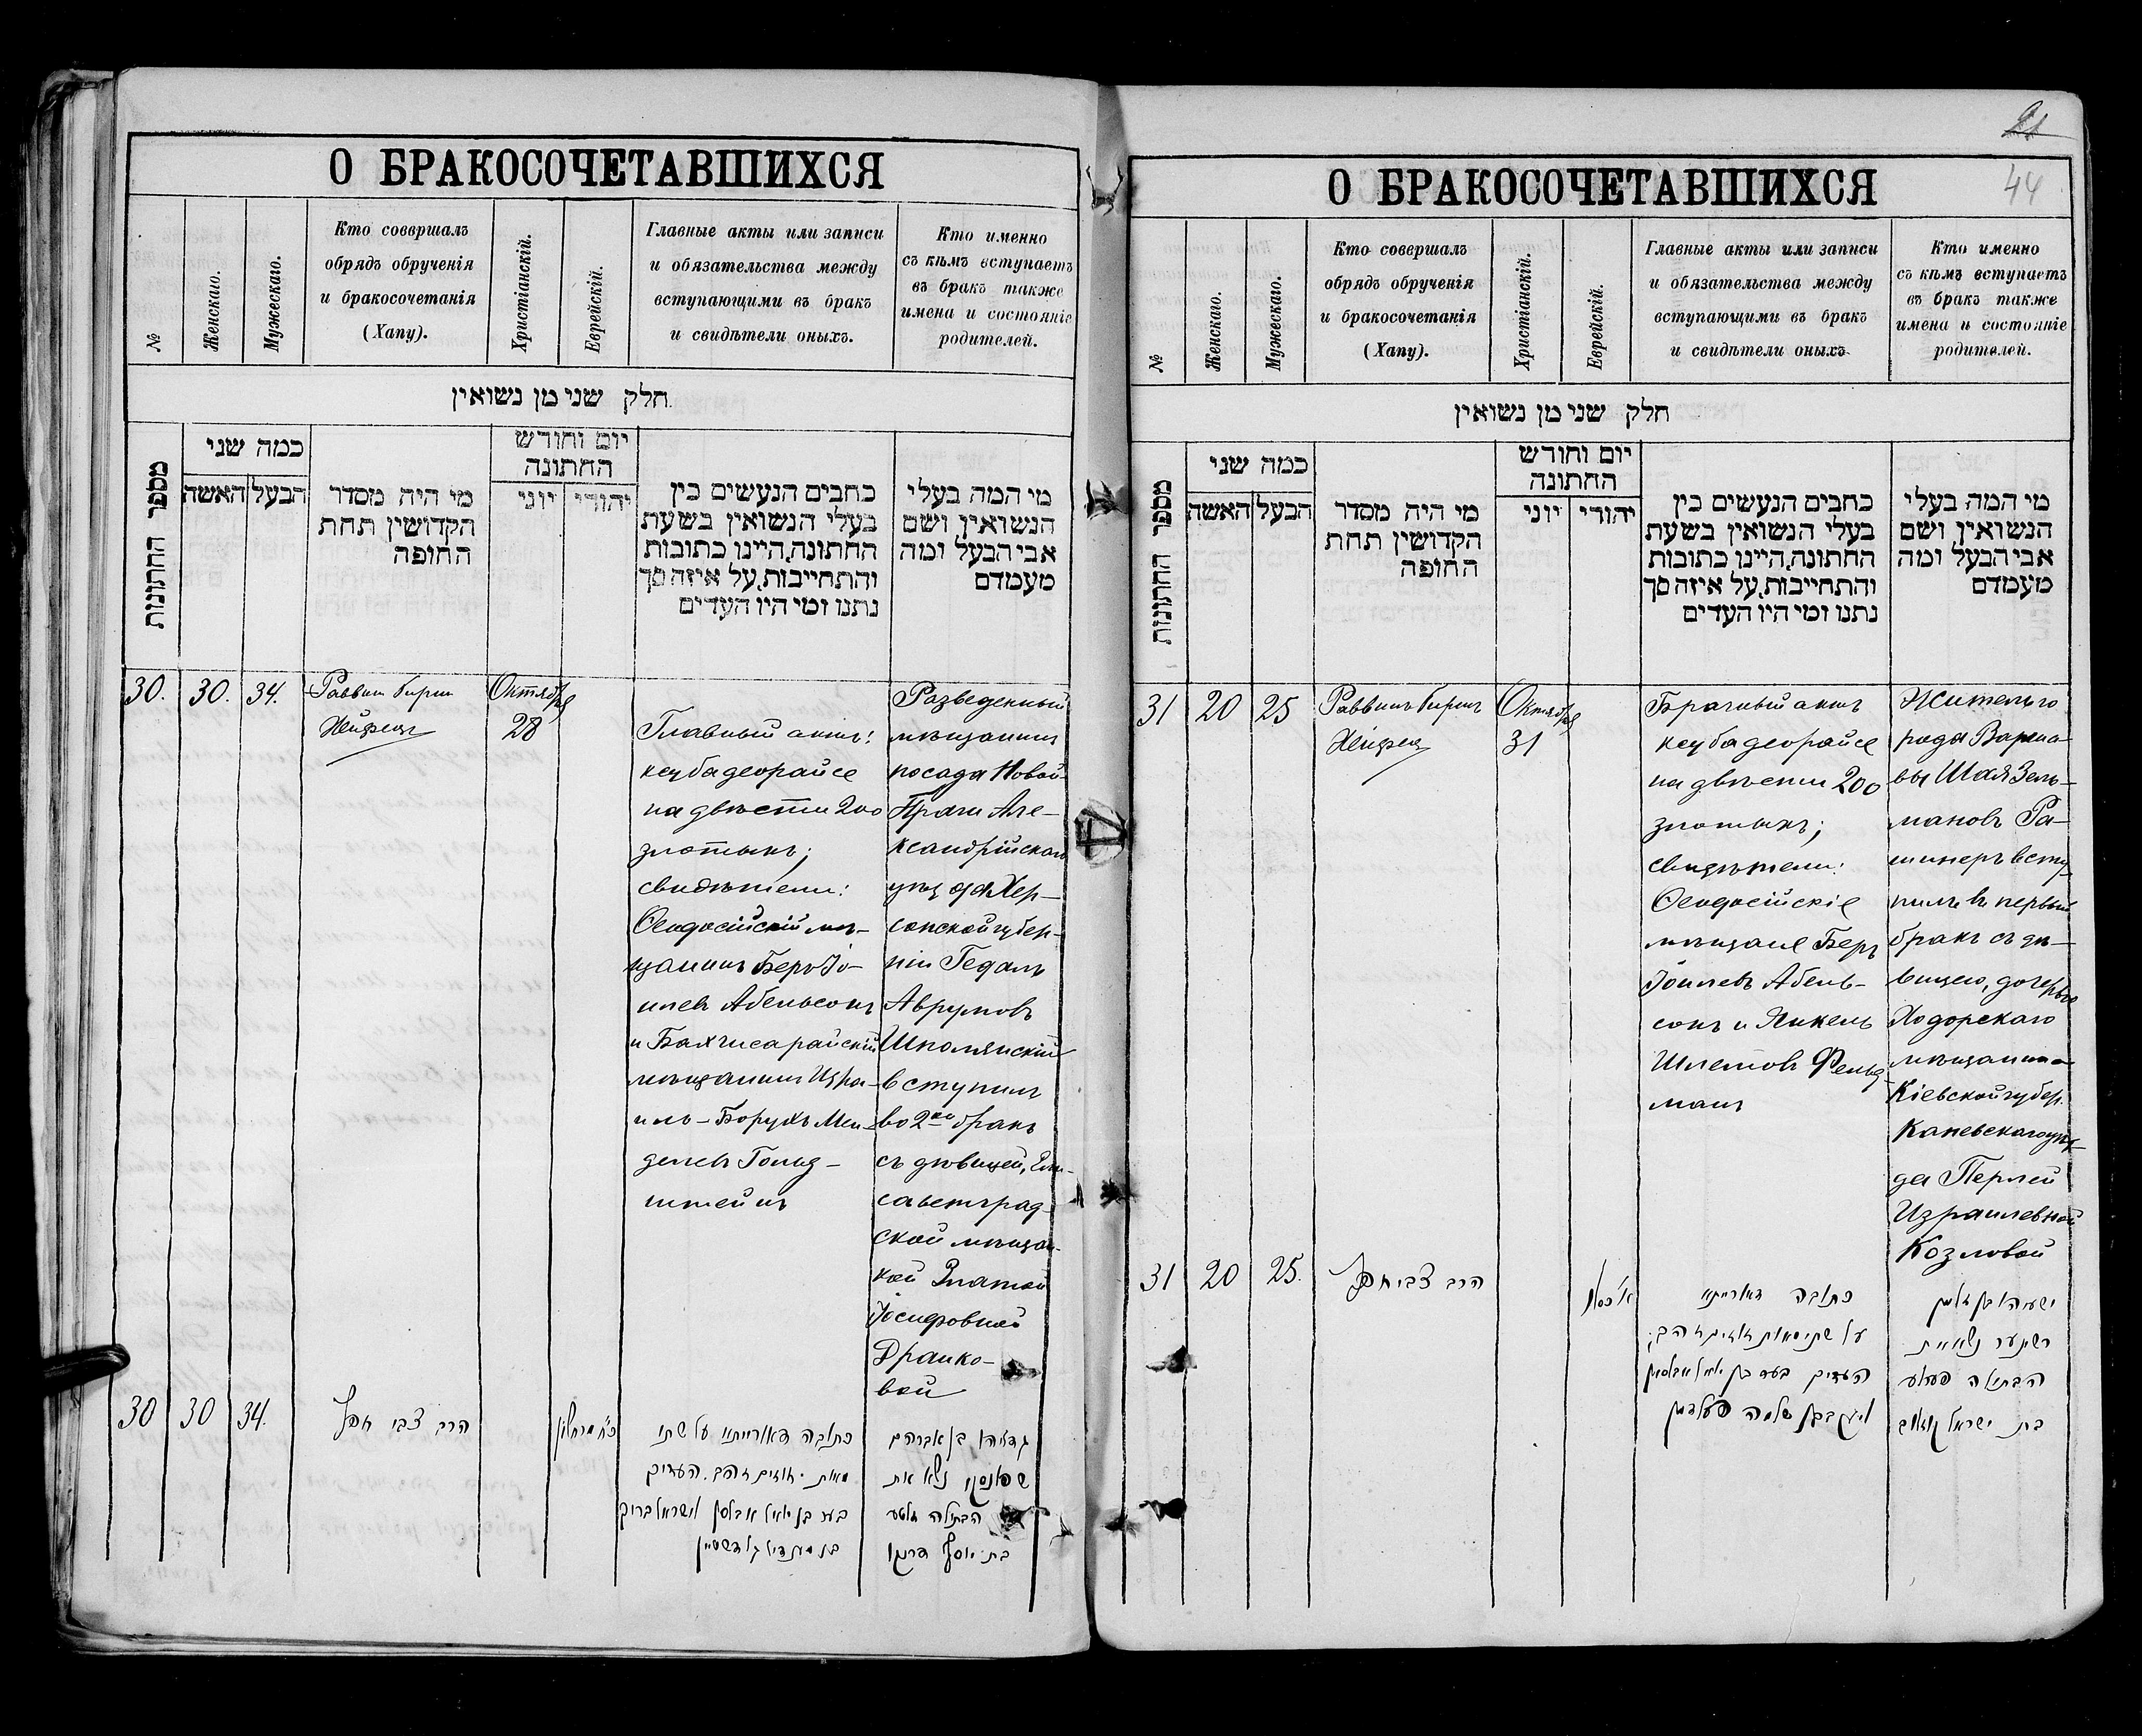 О БРАКОСОЧЕТАВШИХСЯ
№
Женскаго.
Мужескаго.
Кто совершалъ
обрядъ обрученія
и бракосочетанія
(Хапу).
Христіанскій.
Еврейскій.
Главные акты или записи
и обязательства между
вступающими въ бракъ
и свидѣтели оныхъ.
Кто именно
съ кѣмъ вступаетъ
въ бракъ также
имена и состояніе
родителей.
חלק שני מן נשואין
מספר החתונות
כמה שני
האשה
הבעל
מי היה מסדר
הקדושין תחת
החופה
יום וחודש
החתונה
יוני
יהודי
כתבים הנעשים בין
בעלי הנשואין בשעת
החתונה, היינו כתובות
והתחייבות, על איזה סך
נתנו ומי היו העדים
מי המה בעלי
הנשואין ושם
אבי הבעל ומה
מעמדם
30.
30.
34.
Раввинъ Гиршъ
Хейфецъ
Октября
28
Главный актъ:
кесуба деорайсе
на двѣсти 200
злотыхъ;
свидѣтели:
Ѳеодосійскій мѣ-
щанинъ Беръ Іо-
илевъ Абельсонъ
и Бахчисарайскій
мѣщанинъ Изра-
иль-Борухъ Мен-
делевъ Гольд-
штейнъ
Разведенный
мѣщанинъ
посада Новой
Праги Але-
ксандрійскаго
уѣзда Хер-
сонской губер-
ніи Гедаль
Аврумовъ
Шполянскій
вступилъ
во 2ой бракъ
съ дѣвицей, Ели-
саветград-
ской мѣщан-
кой Златой
Іосифовной
Дранко-
вой
30
30
34.
הרב צבי חפץ
כ"ח מרחשון
כתובה דאורייתא על שתי
מאות זהובים זהב. העדים
בער בן יואל אבלסון וישראל ברוך
בן מענדיל גולדשטיין
גדליהו בן אברהם
שפאלנסקי נשא את
הבתולה זלטע
בת יוסף דרנקו
21
О БРАКОСОЧЕТАВШИХСЯ
44
№
Женскаго.
Мужескаго.
Кто совершалъ
обрядъ обрученія
и бракосочетанія
(Хапу).
Христіанскій.
Еврейскій.
Главные акты или записи
и обязательства между
вступающими въ бракъ
и свидѣтели оныхъ.
Кто именно
съ кѣмъ вступаетъ
въ бракъ также
имена и состояніе
родителей.
חלק שני מן נשואין
מספר החתונות
כמה שני
האשה
הבעל
מי היה מסדר
הקדושין תחת
החופה
יום וחודש
החתונה
יוני
יהודי
כתבים הנעשים בין
בעלי הנשואין בשעת
החתונה, היינו כתובות
והתחייבות, על איזה סך
נתנו ומי היו העדים
מי המה בעלי
הנשואין ושם
אבי הבעל ומה
מעמדם
31
20
25
Раввинъ Гиршъ
Хейфецъ
Октября
31
Брачный актъ
кесуба деорайсе
на двѣсти 200
злотыхъ;
свидѣтели:
Ѳеодосійскіе
мѣщане Беръ
Іоилевъ Абель-
сонъ и Янкель
Шлемовъ Фельд-
манъ
Житель го
рода Варша-
вы Шая Зель-
мановъ Ра-
шинеръ всту
пилъ въ первый
бракъ съ дѣ-
вицею, дочерью
Ходорскаго
мѣщанина
Кіевской губер.
Каневскаго уѣз-
да Перлей
Израилевной
Козловой
31
20
25.
הרב צבי חפץ
א' כסלו
כתובה דאורייתא
על שתי מאות זהובים זהב.
העדים בער בן יואל אבלסון
ויעקב בן שלמה פעלדמן
ישעיהו בן זלמן
רשינער נשא את
הבתולה פערלע
בת ישראל קאזלאוו